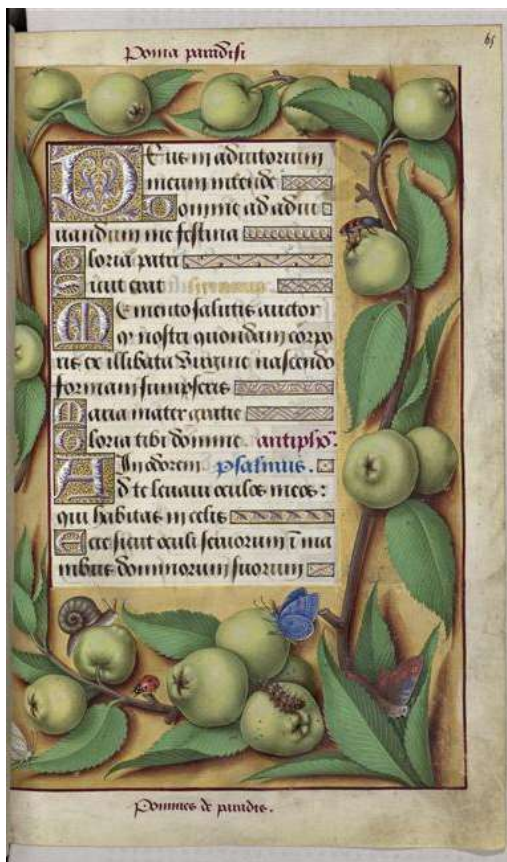 Poma paradisi
65
Eus in adiutorium
meum intende
Domine ad adiu
uandum me festina
Gloria patri
Sicut erat
Memento salutis auctor
nostri quondam corpo
ris ex illibata Virgine nascendo
formam sumpseris
Maria mater gratie
Gloria tibi domine. antipho.
In odorem psalmus.
Ad te leuaui oculos meos:
qui habitas in celis
Ecce sicut oculi seruorum i ma
nibus dominorum suorum
Pommes de paradis.